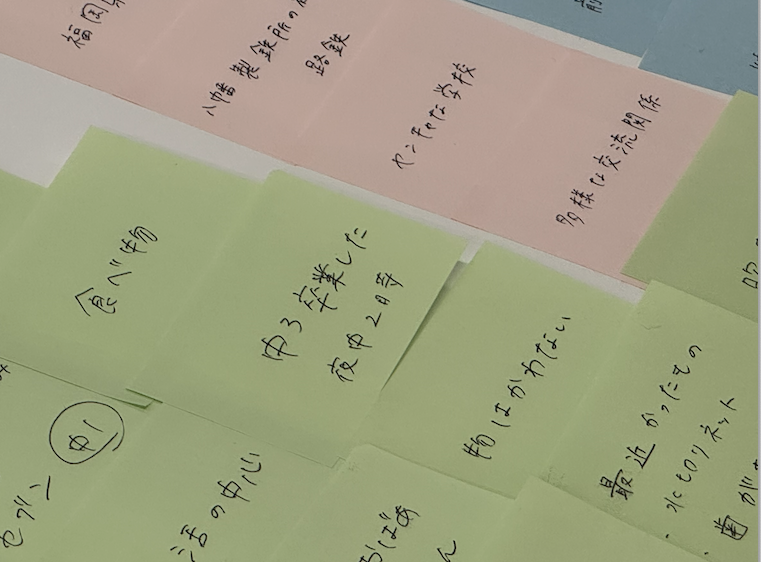 福岡
八幡製鉄所の
路鉄
ヤンチャな学校
多様な交流関係
食べ物
中3卒業した
夜中2時半
物はかわない
最近かったもの
・水切りネット
・歯が
中1
セブン
活の中心
おばあ
ん